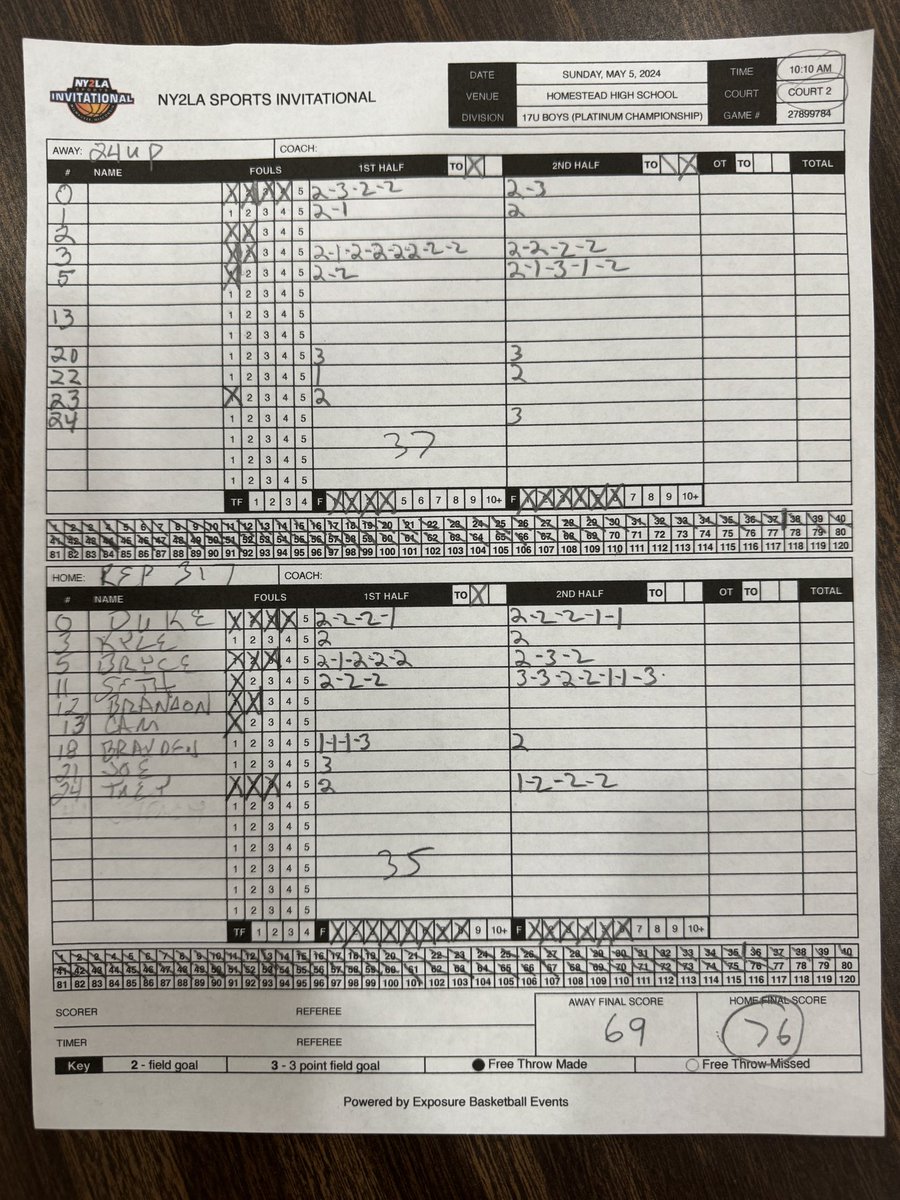 NY2LA SPORTS INVITATIONAL
NY2LA SPORTS INVITATIONAL
DATE SUNDAY, MAY 5, 2024 TIME 10:10 AM
VENUE HOMESTEAD HIGH SCHOOL COURT COURT 2
DIVISION 17U BOYS (PLATINUM CHAMPIONSHIP) GAME # 27899784
AWAY: 24UP COACH:
# NAME FOULS 1ST HALF TO 2ND HALF TO OT TO TOTAL
0 5 2-3-2-2 2-3
1 1 2 3 4 5 2-1 2
2 3 4 5
3 3 4 5 2-1-2-2-2-2-2-2 2-2-2-2
5 2 3 4 5 2-2 2-1-3-1-2
1 2 3 4 5
13 1 2 3 4 5
1 2 3 4 5
20 1 2 3 4 5 3 3
22 1 2 3 4 5 1 2
23 2 3 4 5 2
24 1 2 3 4 5 3
1 2 3 4 5 37
1 2 3 4 5
1 2 3 4 5
TF 1 2 3 4 F 5 6 7 8 9 10+ F 7 8 9 10+
1 2 3 4 5 6 7 8 9 10 11 12 13 14 15 16 17 18 19 20 21 22 23 24 25 26 27 28 29 30 31 32 33 34 35 36 37 38 39 40
41 42 43 44 45 46 47 48 49 50 51 52 53 54 55 56 57 58 59 60 61 62 63 64 65 66 67 68 69 70 71 72 73 74 75 76 77 78 79 80
81 82 83 84 85 86 87 88 89 90 91 92 93 94 95 96 97 98 99 100 101 102 103 104 105 106 107 108 109 110 111 112 113 114 115 116 117 118 119 120
HOME: REP 317 COACH:
# NAME FOULS 1ST HALF TO 2ND HALF TO OT TO TOTAL
0 DUKE 5 2-2-2-1 2-2-2-1-1
3 KYLE 1 2 3 4 5 2 2
5 BRYCE 4 5 2-1-2-2-2 2-3-2
11 SETH 2 3 4 5 2-2-2 3-3-2-2-1-1-3
12 BRANDON 3 4 5
13 CAM 2 3 4 5
18 BRAYDEN 1 2 3 4 5 1-1-1-3 2
21 JOE 1 2 3 4 5 3
24 TREY 4 5 2 1-2-2-2
1 2 3 4 5
1 2 3 4 5
1 2 3 4 5
1 2 3 4 5 35
1 2 3 4 5
1 2 3 4 5
TF 1 2 3 4 F 9 10+ F 7 8 9 10+
1 2 3 4 5 6 7 8 9 10 11 12 13 14 15 16 17 18 19 20 21 22 23 24 25 26 27 28 29 30 31 32 33 34 35 36 37 38 39 40
41 42 43 44 45 46 47 48 49 50 51 52 53 54 55 56 57 58 59 60 61 62 63 64 65 66 67 68 69 70 71 72 73 74 75 76 77 78 79 80
81 82 83 84 85 86 87 88 89 90 91 92 93 94 95 96 97 98 99 100 101 102 103 104 105 106 107 108 109 110 111 112 113 114 115 116 117 118 119 120
SCORER REFEREE AWAY FINAL SCORE HOME FINAL SCORE
69 76
TIMER REFEREE
Key 2 - field goal 3 - 3 point field goal Free Throw Made Free Throw Missed
Powered by Exposure Basketball Events